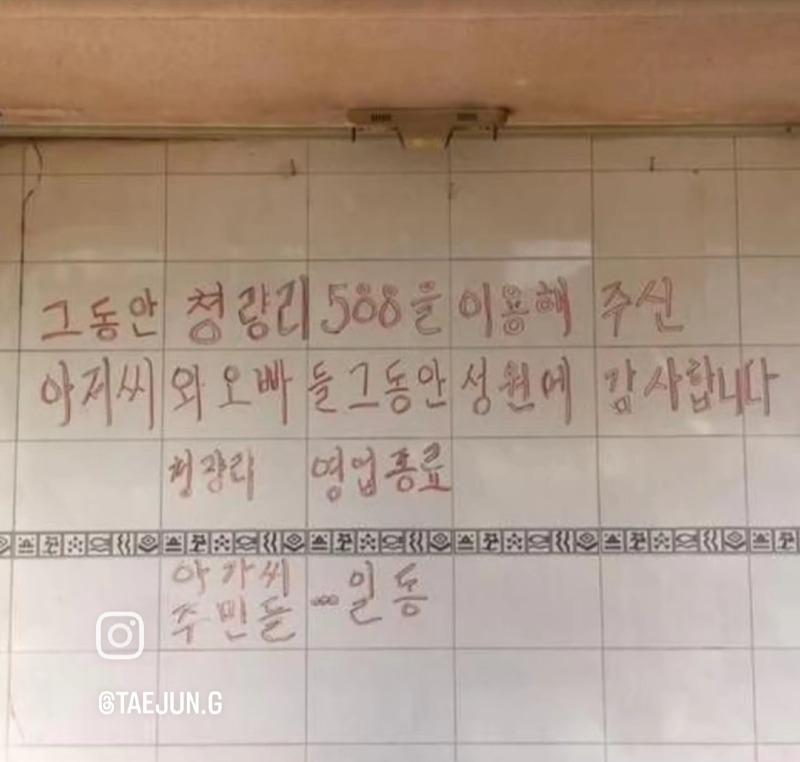 그동안 청량리 588을 이용해 주신
아저씨와 오빠들 그동안 성원에 감사합니다
청량리 영업종료
아가씨
주민들 ... 일동
@TAEJUN.G